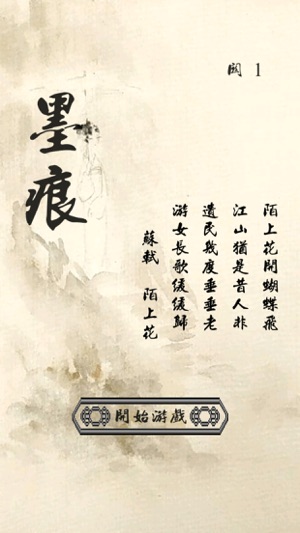 關 1
墨痕
陌上花開蝴蝶飛
江山猶是昔人非
遺民幾度垂垂老
游女長歌緩緩歸
蘇軾 陌上花
開始游戲